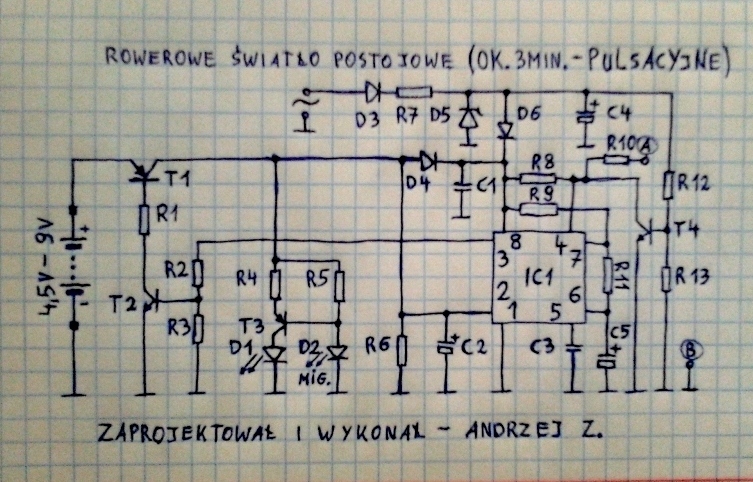 ROWEROWE ŚWIATŁO POSTOJOWE (OK. 3MIN. - PULSACYJNE)
D3 R7 D5 D6 C4
R10 A
T1 D4 C1 R8 R12
R9
R1 T4
4,5V - 9V + 8 4 7
3
R2 R4 R5 IC1 R11 R13
2 6
T2 - 1 5
R3 T3 C5
D1 D2 R6 + C2 C3 + B
MIG.
ZAPROJEKTOWAŁ I WYKONAŁ - ANDRZEJ Z.